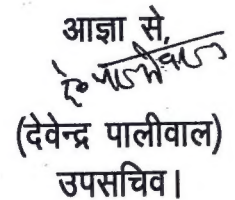 आज्ञा से,
(देवेन्द्र पालीवाल)
उपसचिव।